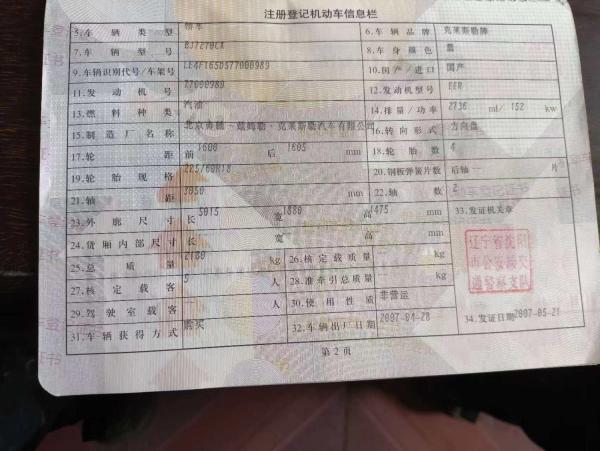 注册登记机动车信息栏
5.车辆类型 轿车 6.车辆品牌 克莱斯勒牌
7.车辆型号 BJ7270CX 8.车身颜色 蓝
9.车辆识别代号/车架号 LE4F165D577000989 10.国产/进口 国产
11.发动机号 77000989 12.发动机型号 EER
13.燃料种类 汽油 14.排量/功率 2736 ml/ 152 kw
15.制造厂名称 北京奔驰-戴姆勒·克莱斯勒汽车有限公司 16.转向形式 方向盘
17.轮距 前 1600 后 1605 mm 18.轮胎数 4
19.轮胎规格 225/60R18 20.钢板弹簧片数 后轴 — 片
21.轴距 3050 mm 22.轴数 2
23.外廓尺寸 长 5015 宽 1880 高 1475 mm 33.发证机关章
24.货厢内部尺寸 长 — 宽 — 高 — mm
25.总质量 2180 kg 26.核定载质量 — kg
27.核定载客 5 人 28.准牵引总质量 — kg
29.驾驶室载客 — 人 30.使用性质 非营运
31.车辆获得方式 购买 32.车辆出厂日期 2007-04-28 34.发证日期 2007-05-21
辽宁省沈阳
市公安局交
通警察支队
第2页